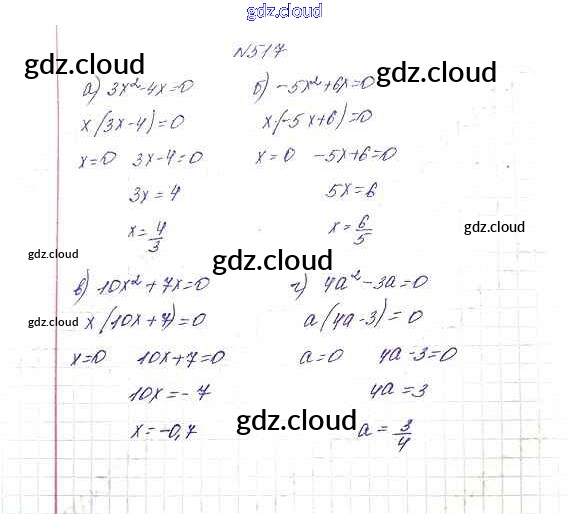 gdz.cloud
N517
gdz.cloud
а) 3x²-4x=0
x(3x-4)=0
x=0 3x-4=0
3x=4
x=4/3
б) -5x²+6x=0
gdz.cloud
x(-5x+6)=0
x=0 -5x+6=0
5x=6
x=6/5
gdz.cloud
gdz.cloud
gdz.cloud
в) 10x²+7x=0
gdz.cloud
x(10x+7)=0
x=0 10x+7=0
10x=-7
x=-0,7
г) 4a²-3a=0
a(4a-3)=0
a=0 4a-3=0
4a=3
gdz.cloud
a=3/4
gdz.cloud
gdz.cloud
gdz.cloud